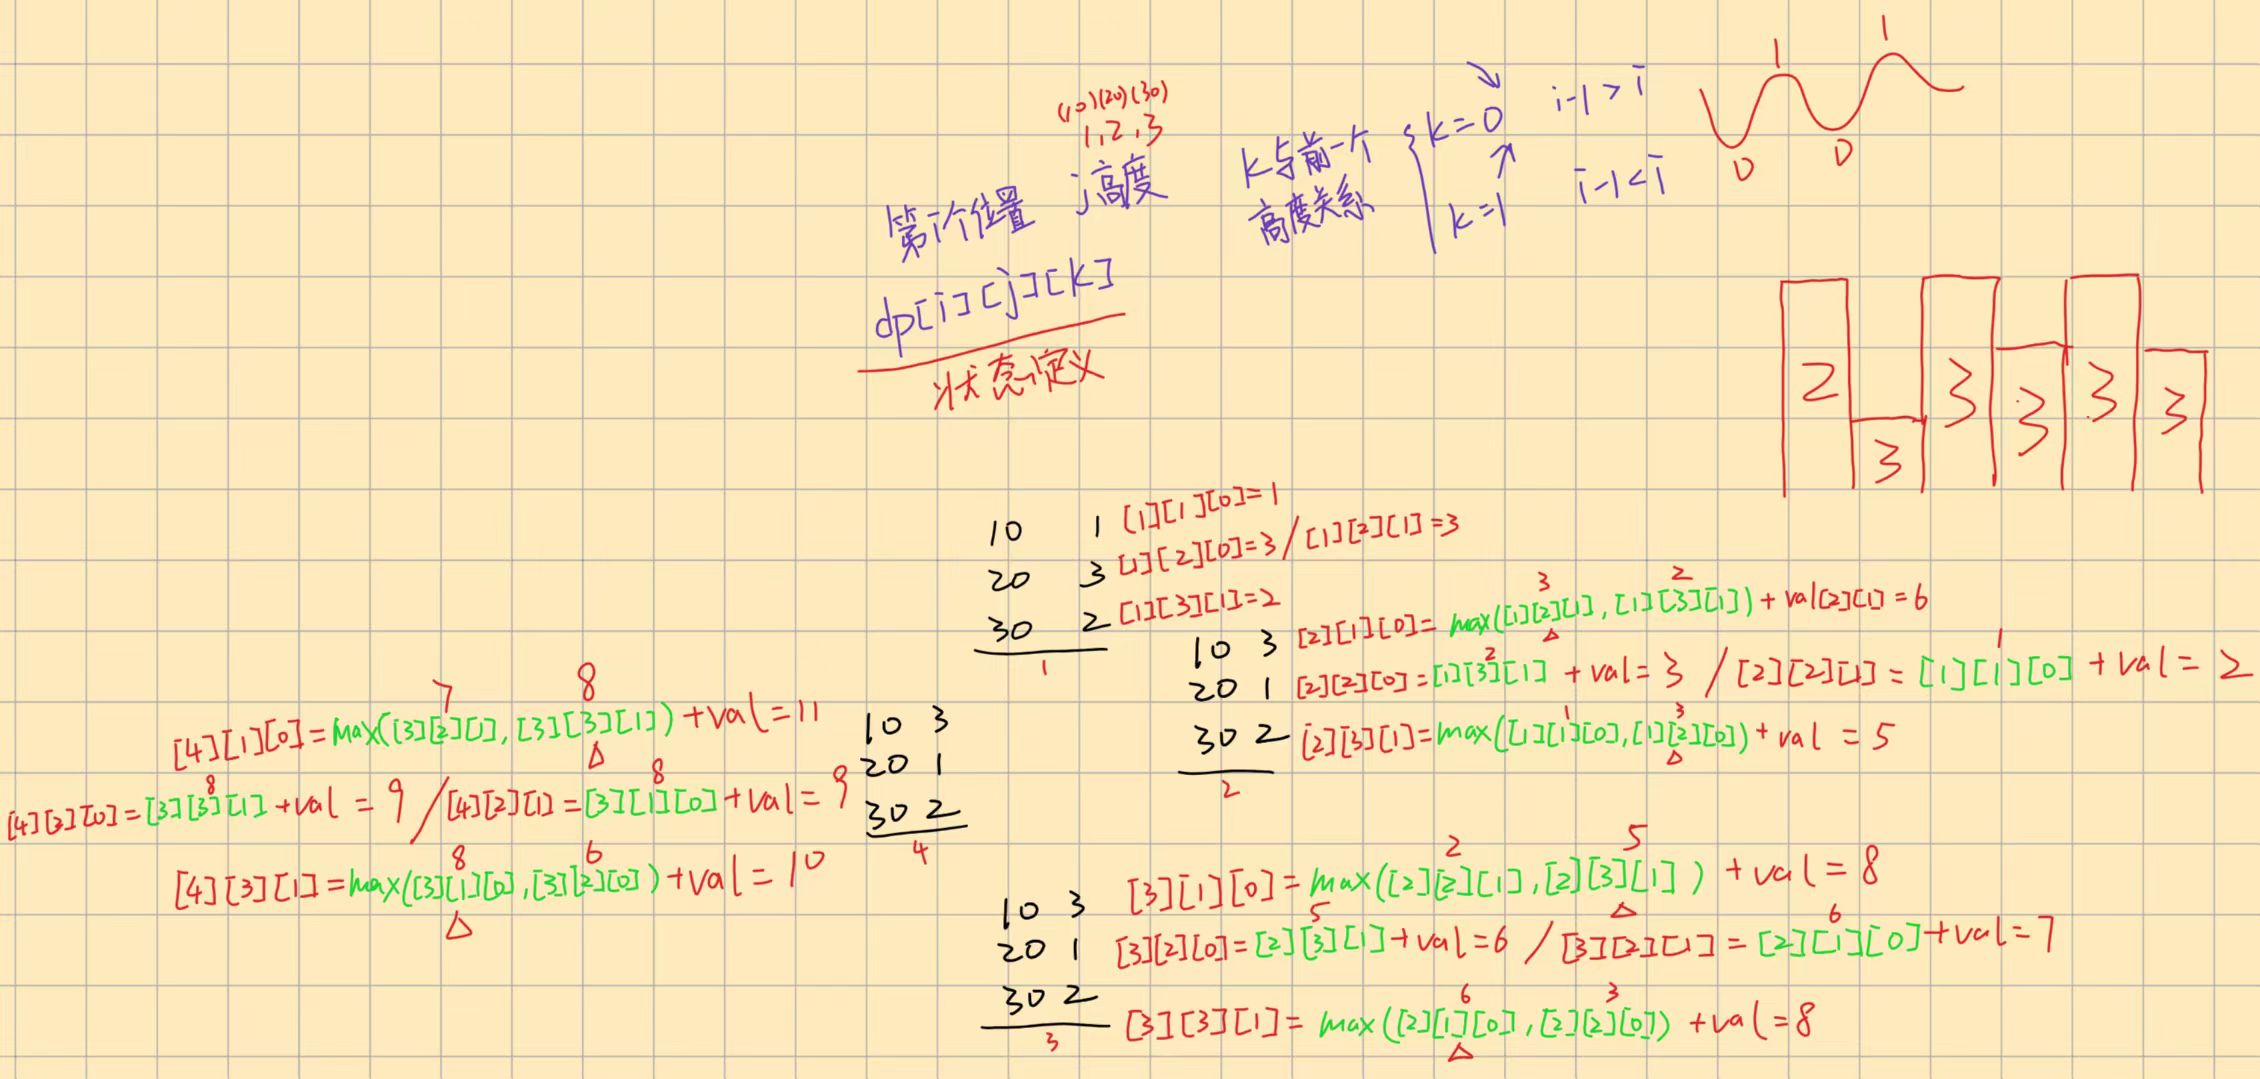 (10)(20)(30)
1,2,3
第i个位置 j高度
dp[i][j][k]
状态定义
k与前一个
高度关系
k=0 i-1>i
k=1 i-1<i
1 1
0 0
2 3 3 3 3 3
10 1 [1][1][0]=1
20 3 [1][2][0]=3/[1][2][1]=3
30 2 [1][3][1]=2
1
3 2
10 3 [2][1][0]=max([1][2][1],[1][3][1])+val[2][1]=6
△
2 1
20 1 [2][2][0]=[1][3][1]+val=3/[2][2][1]=[1][1][0]+val=2
1 3
30 2 [2][3][1]=max([1][1][0],[1][2][0])+val=5
△
2
2 5
10 3 [3][1][0]=max([2][2][1],[2][3][1])+val=8
△
5 6
20 1 [3][2][0]=[2][3][1]+val=6/[3][2][1]=[2][1][0]+val=7
6 3
30 2 [3][3][1]=max([2][1][0],[2][2][0])+val=8
△
3
7 8
[4][1][0]=max([3][2][1],[3][3][1])+val=11 10 3
△
8 8
[4][2][0]=[3][3][1]+val=9/[4][2][1]=[3][1][0]+val=9 20 1
8 6
[4][3][1]=max([3][1][0],[3][2][0])+val=10 30 2
△
4